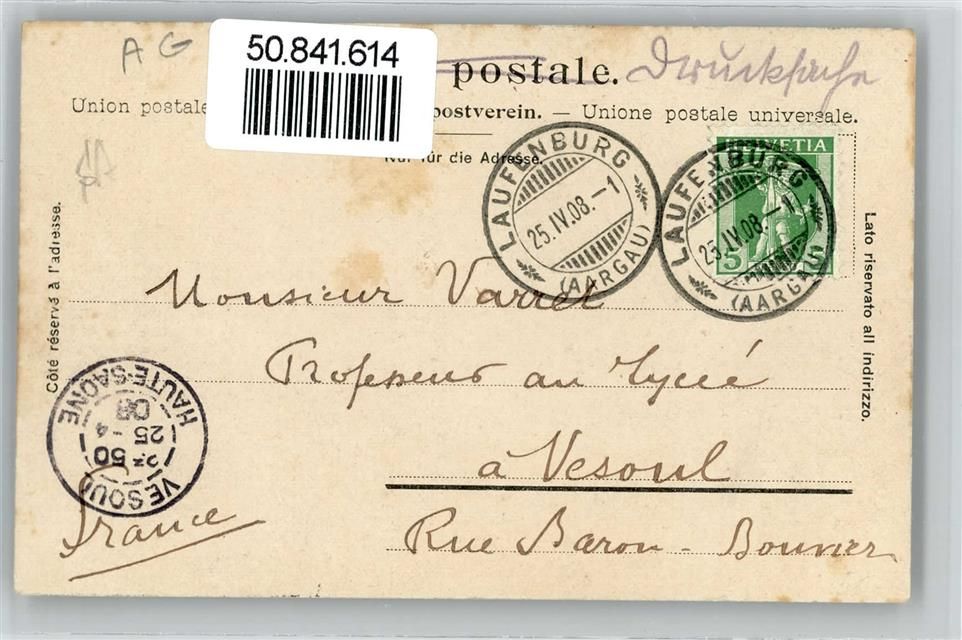 AG
50.841.614
postale. Drucksache
Union postale postverein. — Unione postale universale.
Nur für die Adresse.
HELVETIA
5
LAUFENBURG
25.IV.08.–1
(AARGAU)
LAUFENBURG
25.IV.08.–1
(AARGAU)
Côté réservé à l'adresse.
Lato riservato all indirizzo.
Monsieur Varret
Professeur au Lycée
à Vesoul
Rue Baron-Bouvier
France
VESOUL
50
25 -4
08
HAUTE-SAONE